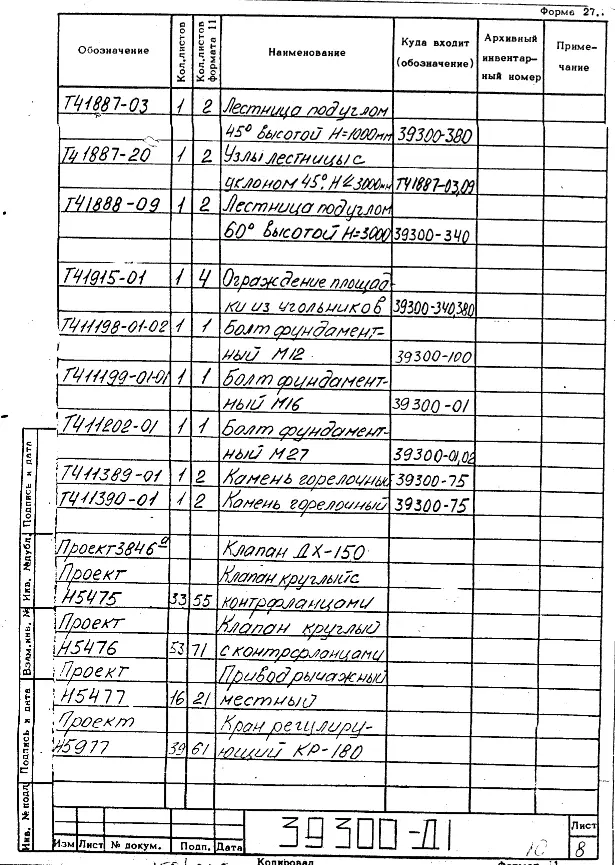 Форма 27.
Обозначение Кол.листов Кол.листов формата 11 Наименование Куда входит (обозначение) Архивный инвентарный номер Примечание
Т41887-03 1 2 Лестница под углом
45° высотой Н=1000мм 39300-380
Т41887-20 1 2 Узлы лестницы с
уклоном 45° Н≤3000мм Т41887-03,09
Т41888-09 1 2 Лестница под углом
60° высотой Н=3000 39300-340
Т41915-01 1 4 Ограждение площад-
ки из угольников 39300-340,380
Т411198-01-02 1 1 Болт фундамент-
ный М12 39300-100
Т411199-01-01 1 1 Болт фундамент-
ный М16 39300-01
Т411202-01 1 1 Болт фундамент-
ный М27 39300-01,02
Т411389-01 1 2 Камень горелочный 39300-75
Т411390-01 1 2 Камень горелочный 39300-75
Проект 3846а Клапан ДХ-150
Проект Клапан круглый с
Н5475 33 55 контрфланцами
Проект Клапан круглый
Н5476 53 71 с контрфланцами
Проект Привод рычажный
Н5477 16 21 местный
Проект Кран регулиру-
Н5977 39 61 ющий КР-180
Инв. № подл. Подпись и дата Взам.инв. № Инв. № дубл. Подпись и дата
39300-Д1
Лист
10 8
Изм Лист № докум. Подп. Дата
Копировал